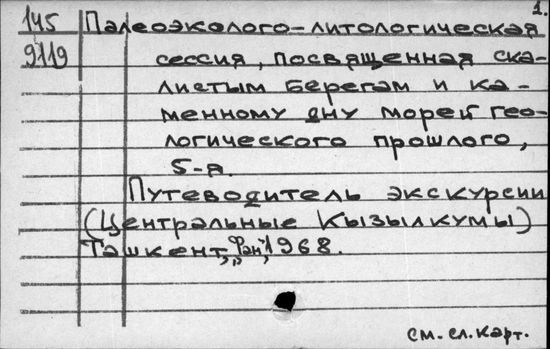 1.
145 Палеоэколого-литологическая
9119 сессия, посвященная ска-
листым берегам и ка-
менному дну морей гео-
логического прошлого,
5-я.
Путеводитель экскурсии
(Центральные Кызылкумы)
Ташкент, "Фан", 1968.
см. сл. карт.